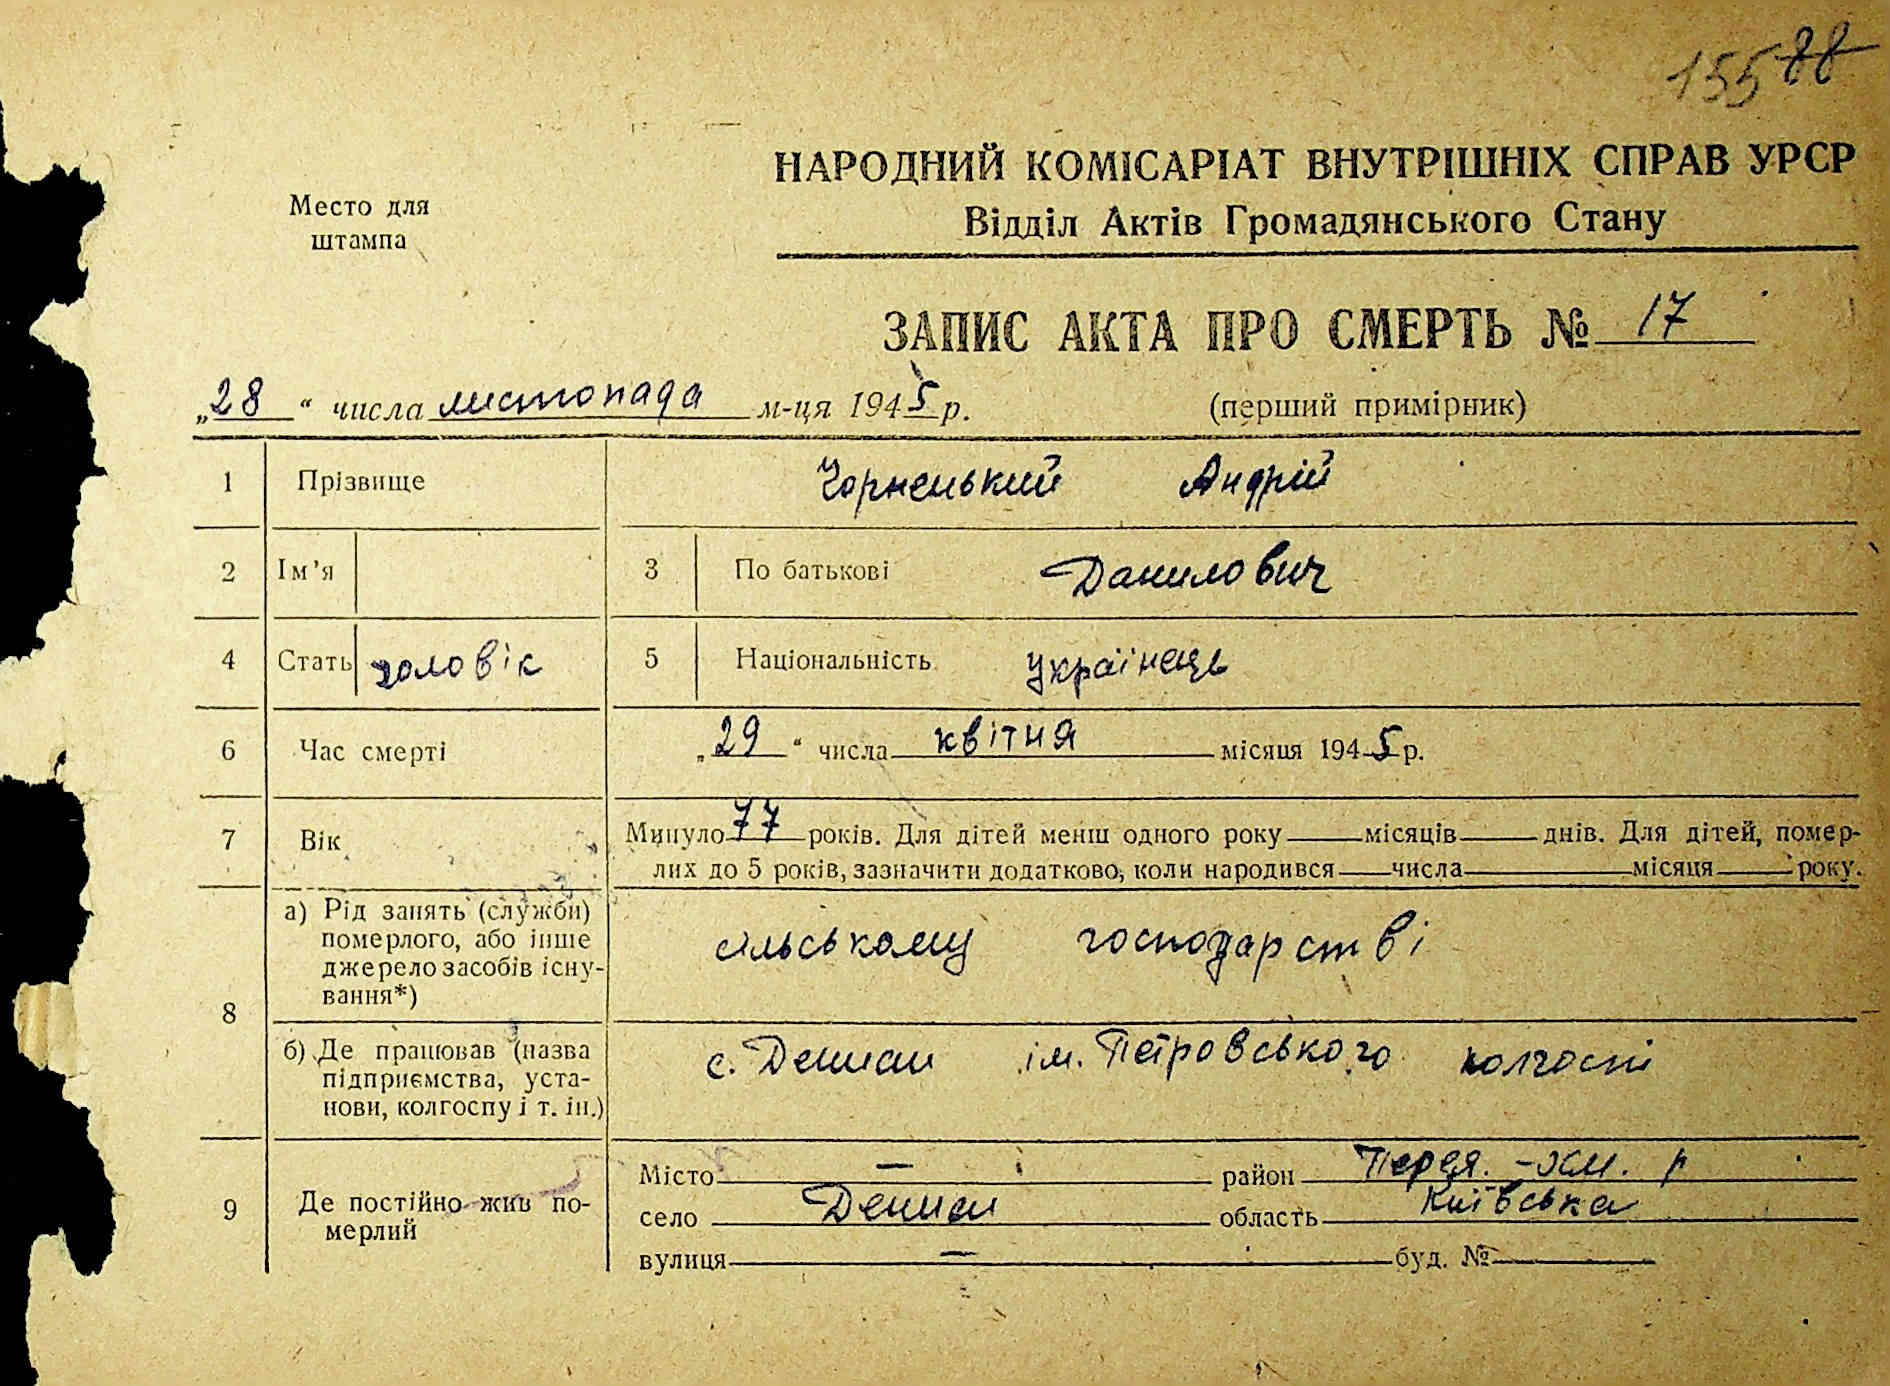 155 88
НАРОДНИЙ КОМІСАРІАТ ВНУТРІШНІХ СПРАВ УРСР
Відділ Актів Громадянського Стану
Место для
штампа
ЗАПИС АКТА ПРО СМЕРТЬ № 17
„28“ числа листопада м-ця 1945 р.
(перший примірник)
1 Прізвище Чорненький Андрій
2 Ім’я 3 По батькові Данилович
4 Стать чоловік 5 Національність українець
6 Час смерті „29“ числа квітня місяця 1945 р.
7 Вік Минуло 77 років. Для дітей менш одного року місяців днів. Для дітей, помер-
лих до 5 років, зазначити додатково, коли народився числа місяця року.
8 а) Рід занять (служби)
померлого, або інше
джерело засобів існу-
вання*)
сільському господарстві
б) Де працював (назва
підприємства, уста-
нови, колгоспу і т. ін.)
с. Дениси ім. Петровського колгосп
9 Де постійно жив по-
мерлий
Місто — район Перея.-Хм. р
село Дениси область Київська
вулиця — буд. №